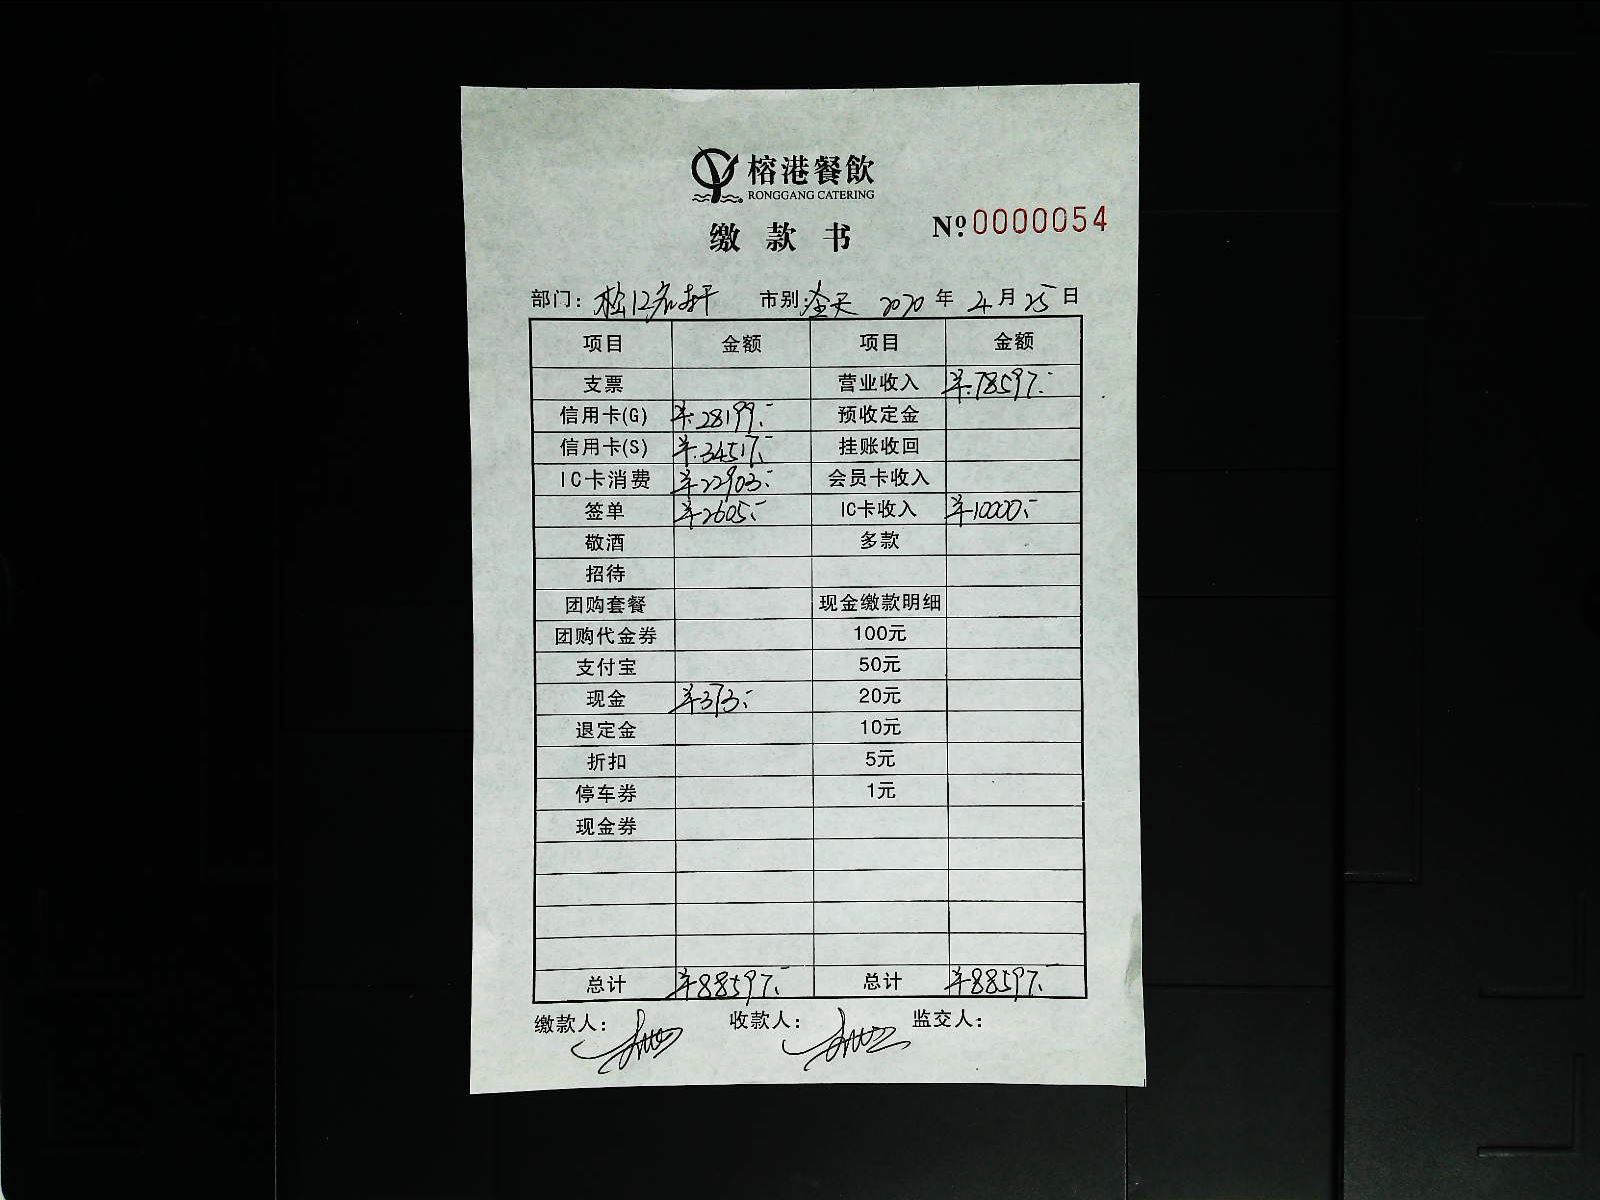 榕港餐飲
RONGGANG CATERING
缴款书 №0000054
部门: 松江名轩 市别: 全天 2020 年 4 月 25 日
项目 金额 项目 金额
支票 营业收入 ¥78597.-
信用卡(G) ¥28199.- 预收定金
信用卡(S) ¥34517.- 挂账收回
IC卡消费 ¥22903.- 会员卡收入
签单 ¥2605.- IC卡收入 ¥10000.-
敬酒 多款
招待
团购套餐 现金缴款明细
团购代金券 100元
支付宝 50元
现金 ¥373.- 20元
退定金 10元
折扣 5元
停车券 1元
现金券
总计 ¥88597.- 总计 ¥88597.-
缴款人: 收款人: 监交人: